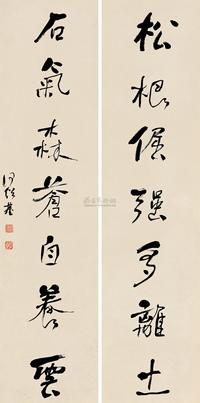 松根倔强多離土
石氣森蒼自養雲
何紹基